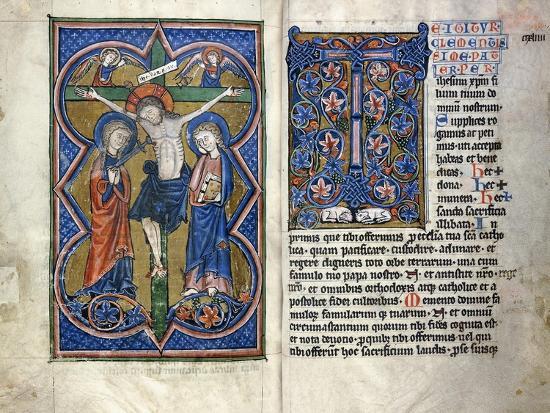 T E IGITVR
CLEMENTIS
SIME PAT
ER PER
ihesum xpm fi
lium tuum do
minum nostrum.
Supplices ro
gamus ac peti
mus. uti accepta
habeas et bene
dicas. hec ✝
dona. hec ✝
munera. hec ✝
sancta sacrificia
illibata. In
primis que tibi offerimus p ecclesia tua sca catho
lica. quam pacificare. custodire. adunare. et
regere digneris toto orbe terrarum. una cum
famulo tuo papa nostro. N. et antistite nro. rege
et omnibus orthodoxis atq catholice et a
postolice fidei cultoribus. Memento domine fa
mulor famularum q tuarum. N. et omnium
circumastantium quorum tibi fides cognita est
et nota devotio. p quibus tibi offerimus vel qui
tibi offerunt hoc sacrificium laudis. p se suisq